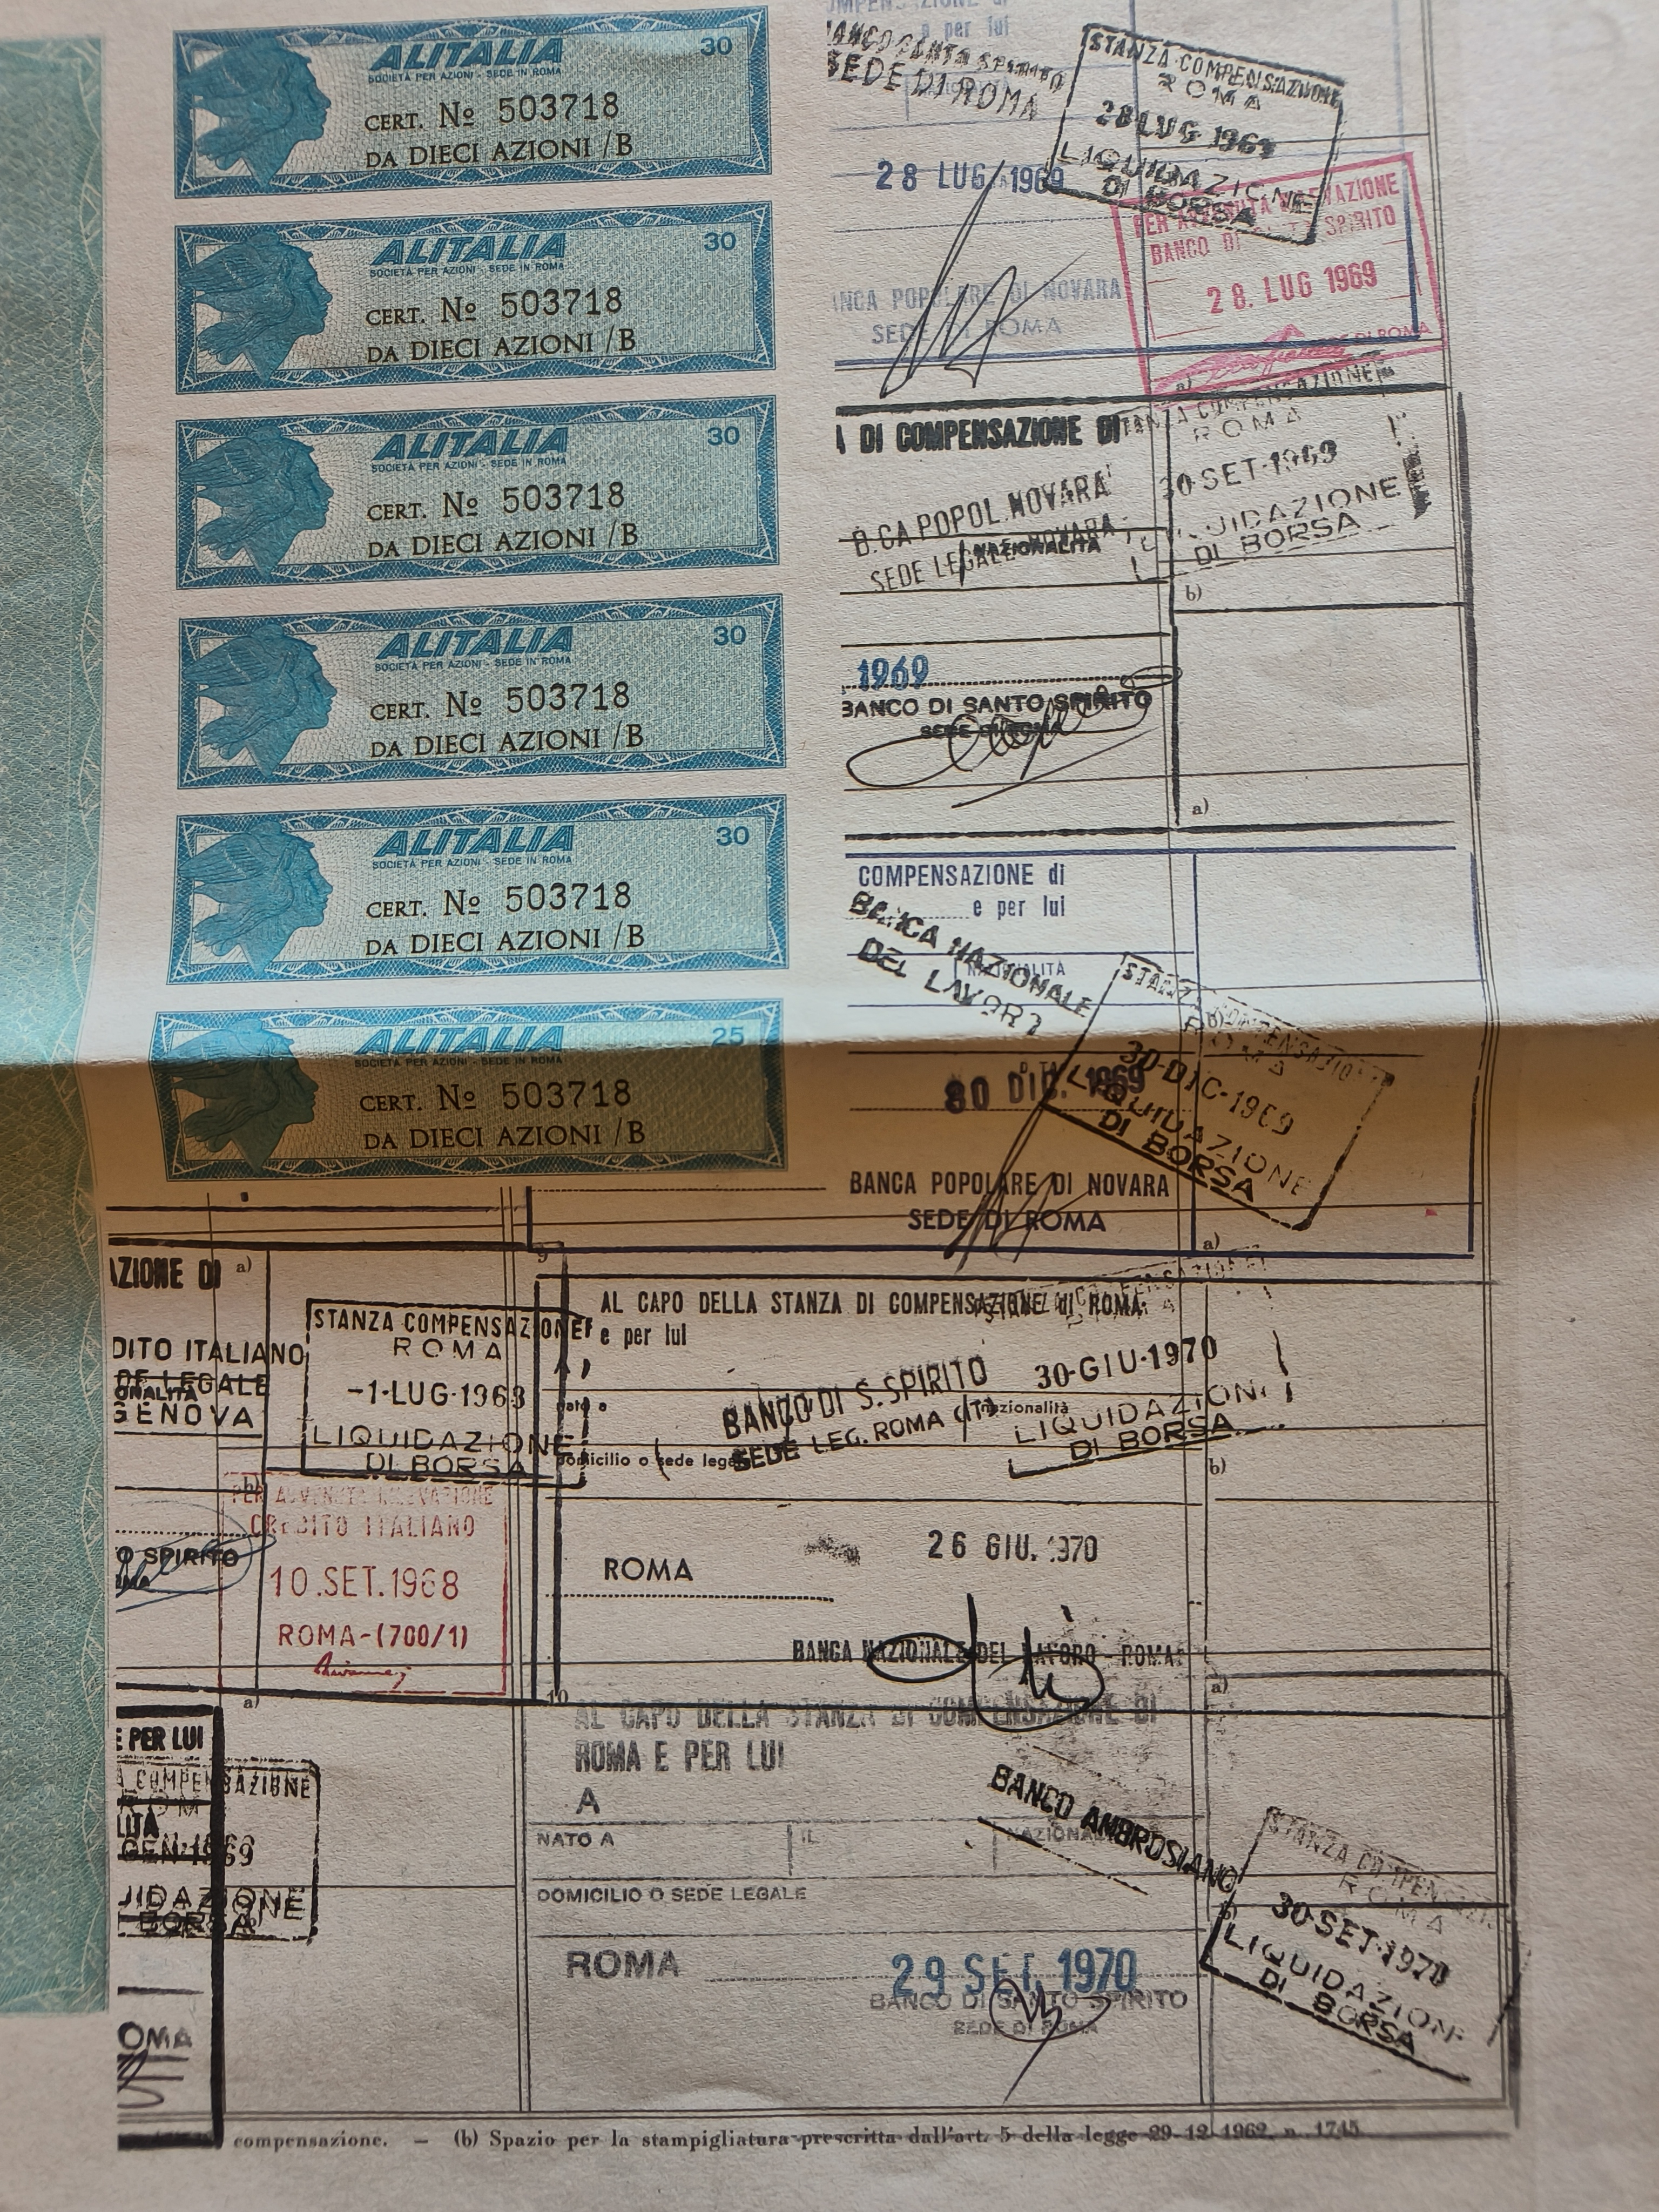 ALITALIA 30
SOCIETÀ PER AZIONI - SEDE IN ROMA
CERT. Nº 503718
DA DIECI AZIONI /B
ALITALIA 30
SOCIETÀ PER AZIONI - SEDE IN ROMA
CERT. Nº 503718
DA DIECI AZIONI /B
ALITALIA 30
SOCIETÀ PER AZIONI - SEDE IN ROMA
CERT. Nº 503718
DA DIECI AZIONI /B
ALITALIA 30
SOCIETÀ PER AZIONI - SEDE IN ROMA
CERT. Nº 503718
DA DIECI AZIONI /B
ALITALIA 30
SOCIETÀ PER AZIONI - SEDE IN ROMA
CERT. Nº 503718
DA DIECI AZIONI /B
ALITALIA 25
SOCIETÀ PER AZIONI - SEDE IN ROMA
CERT. Nº 503718
DA DIECI AZIONI /B
e per lui
SEDE DI ROMA
STANZA COMPENSAZIONE
ROMA
28 LUG 1969
LIQUIDAZIONE
DI BORSA
28 LUG 1969
BANCO DI SPIRITO
28. LUG 1969
DI ROMA
NCA POPOLARE DI NOVARA
SEDE DI ROMA
a)
DI COMPENSAZIONE DI
STANZA COMPENSAZIONE
ROMA
30 SET·1969
UIDAZIONE
DI BORSA
B.CA POPOL. NOVARA
SEDE LEGALE NOVARA
NAZIONALITÀ
b)
1969
BANCO DI SANTO SPIRITO
SEDE DI ROMA
a)
COMPENSAZIONE di
e per lui
BANCA NAZIONALE
DEL LAVORO
NAZIONALITÀ
STANZA COMPENSAZIONE
ROMA
30-DIC-1969
LIQUIDAZIONE
DI BORSA
b)
30 DIC. 1969
BANCA POPOLARE DI NOVARA
SEDE DI ROMA
a)
9
AZIONE DI
a)
DITO ITALIANO
DE LEGALE
ONALITÀ
GENOVA
STANZA COMPENSAZIONE
ROMA
-1·LUG·1968
LIQUIDAZIONE
DI BORSA
PER AVVENUTA RILEVAZIONE
CREDITO ITALIANO
10.SET.1968
ROMA-(700/1)
O SPIRITO
a)
AL CAPO DELLA STANZA DI COMPENSAZIONE di ROMA
e per lui
BANCO DI S. SPIRITO
SEDE LEG. ROMA (IT)
30-GIU·1970
LIQUIDAZIONE
DI BORSA
nato a
nazionalità
domicilio o sede legale
b)
26 GIU. 1970
ROMA
BANCA NAZIONALE DEL LAVORO - ROMA
a)
10
AL CAPO DELLA STANZA DI COMPENSAZIONE DI
ROMA E PER LUI
A
BANCO AMBROSIANO
NATO A
IL
DOMICILIO O SEDE LEGALE
STANZA COMPENSAZI
ROMA
30·SET·1970
LIQUIDAZION
DI BORSA
ROMA
29 SET. 1970
BANCO DI SANTO SPIRITO
SEDE DI ROMA
E PER LUI
A COMPENSAZIONE
GEN·1969
UIDAZIONE
BORSA
OMA
compensazione. — (b) Spazio per la stampigliatura prescritta dall'art. 5 della legge 29-12-1962, n. 1745